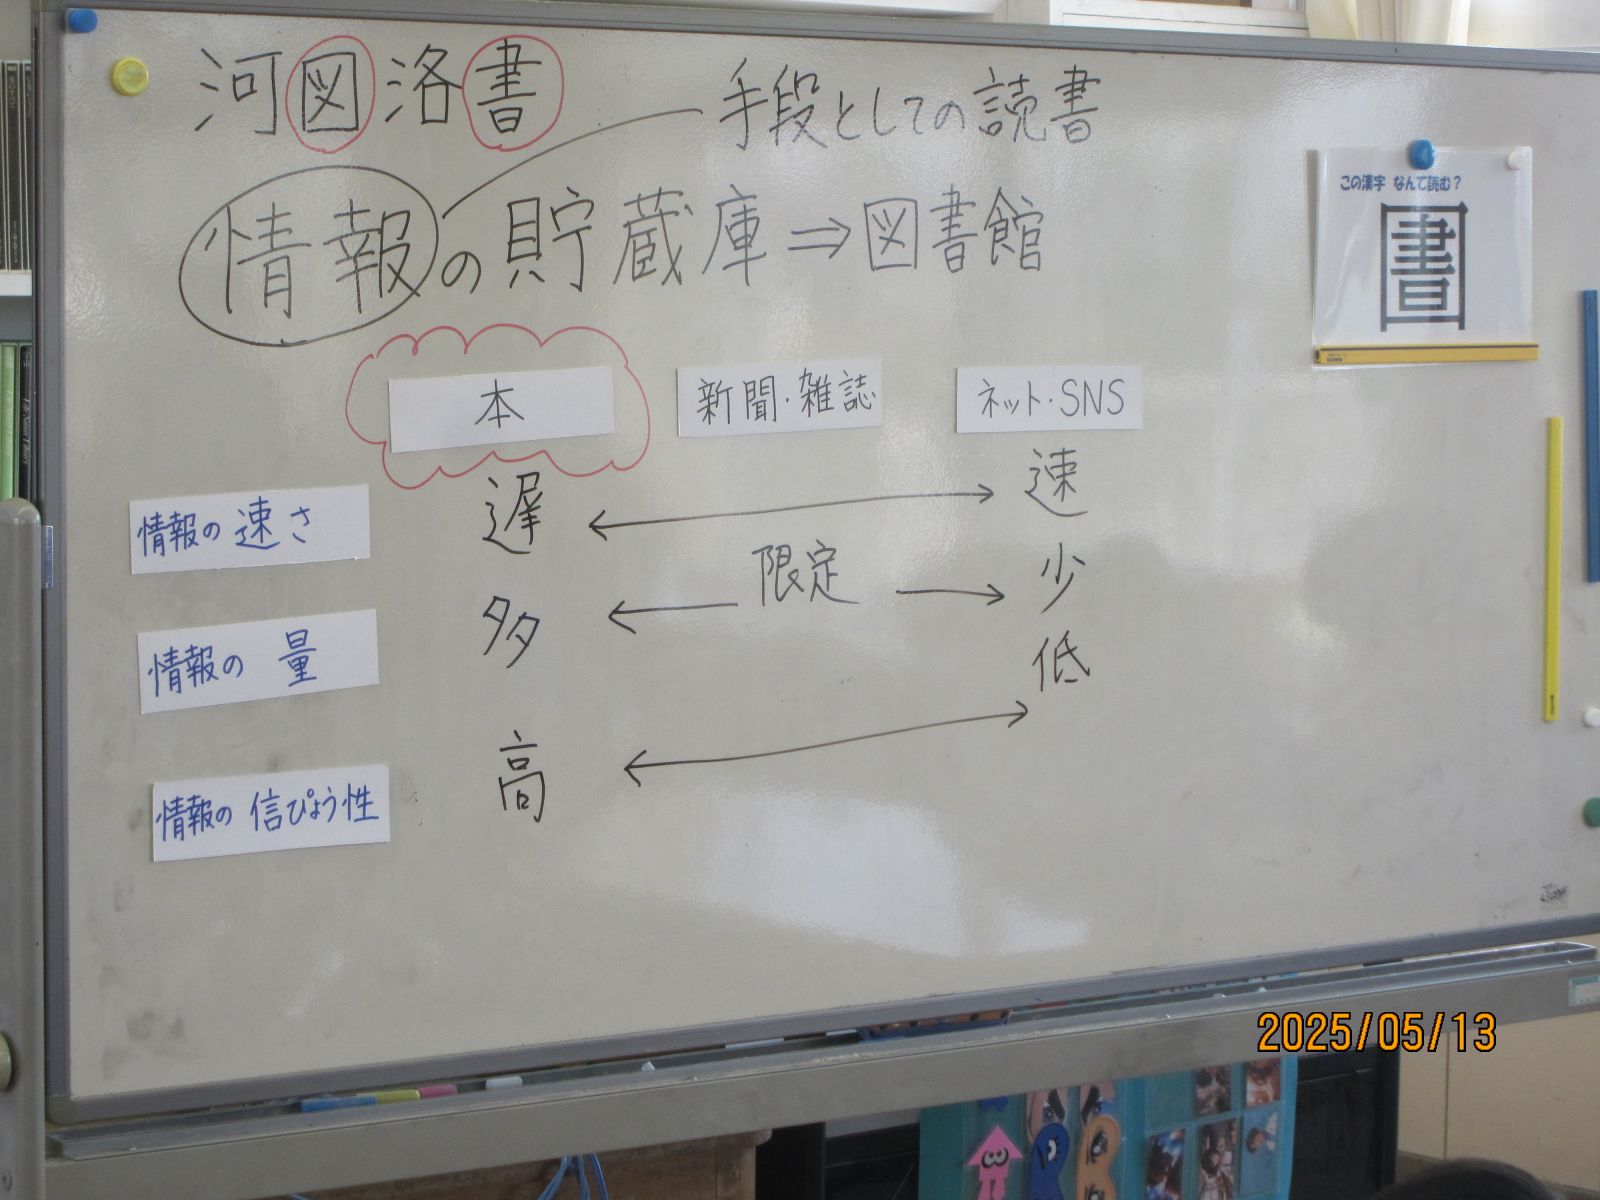 河図洛書
手段としての読書
情報の貯蔵庫⇒図書館
この漢字 なんて読む？
圕
本 新聞・雑誌 ネット・SNS
情報の速さ 遅 速
情報の量 多 限定 少
情報の信ぴょう性 高 低
2025/05/13